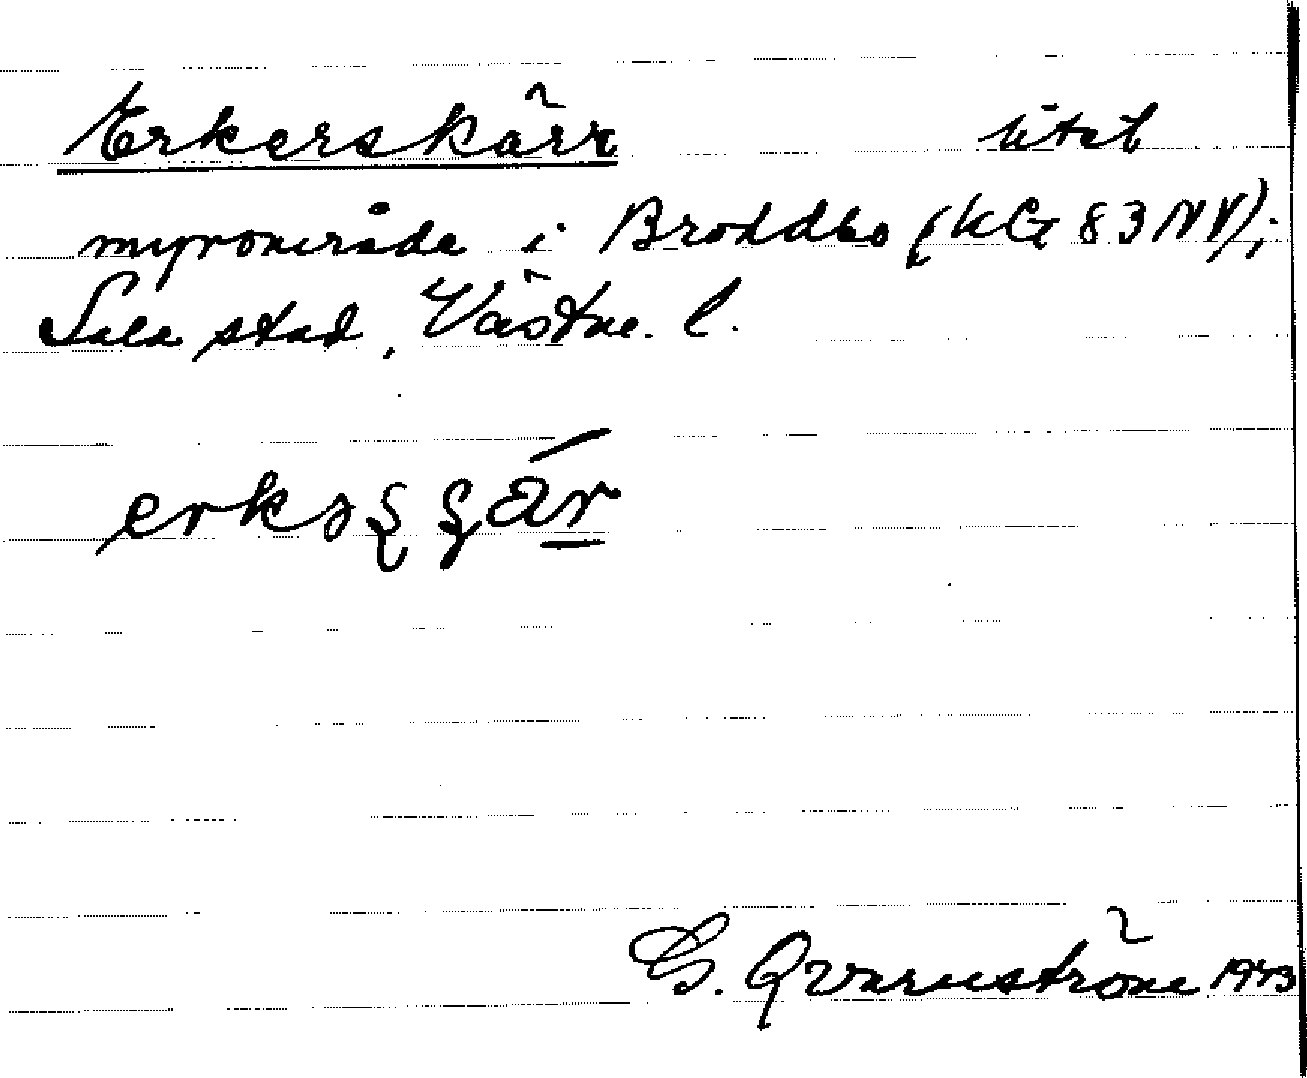 Erkerskärr utal
myrområde i Broddbo (KG 83 NV);
Sala stad, Västm. l.
G. Qvarnström 1943